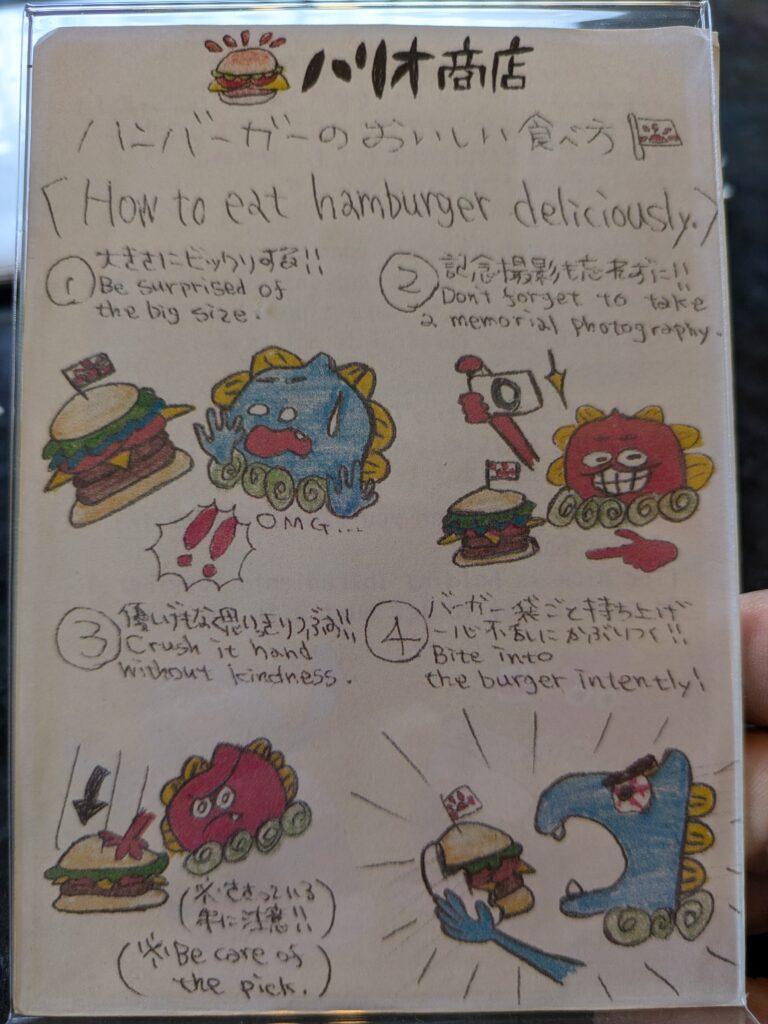 バリオ商店
ハンバーガーのおいしい食べ方
(How to eat hamburger deliciously.)
① 大きさにビックリする!!
Be surprised of
the big size.
② 記念撮影も忘れずに!!
Don't forget to take
a memorial photography.
OMG...
!!
③ 優しげもなく思いきりつぶす!!
Crush it hand
without kindness.
④ バーガー袋ごと持ち上げ
一心不乱にかぶりつく!!
Bite into
the burger intently!
(※ささっている
串に注意!!)
(※Be care of
the pick.)